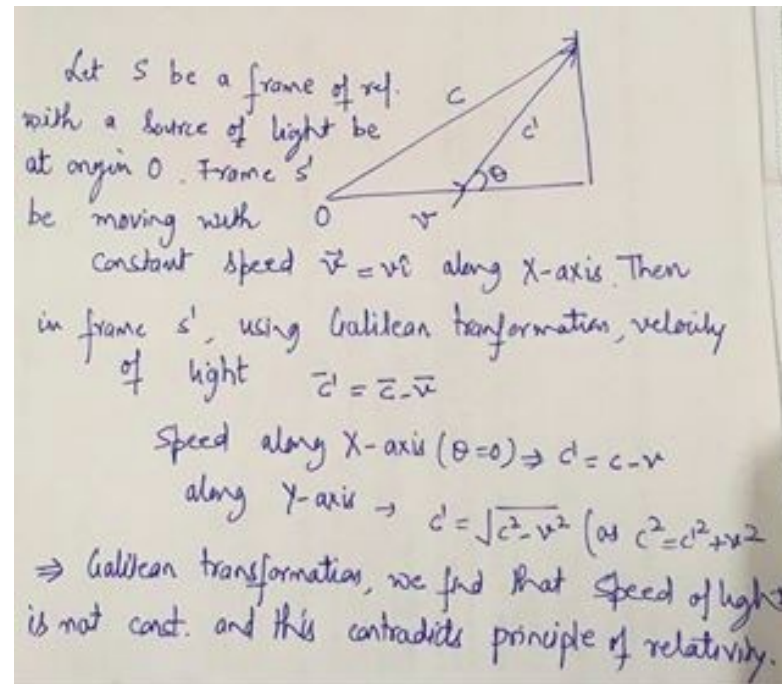 Let S be a frame of ref.
with a source of light be
at origin O. Frame s'
be moving with
constant speed v⃗ = vî along X-axis. Then
in frame s', using Galilean tranformation, velocity
of light c̄' = c̄ - v̄
Speed along X-axis (θ=0) ⇒ c' = c-v
along Y-axis → c' = √(c²-v²) (as c²=c'²+v²
⇒ Galilean transformation, we find that speed of light
is not const. and this contradicts principle of relativity.
c
c'
θ
O
v